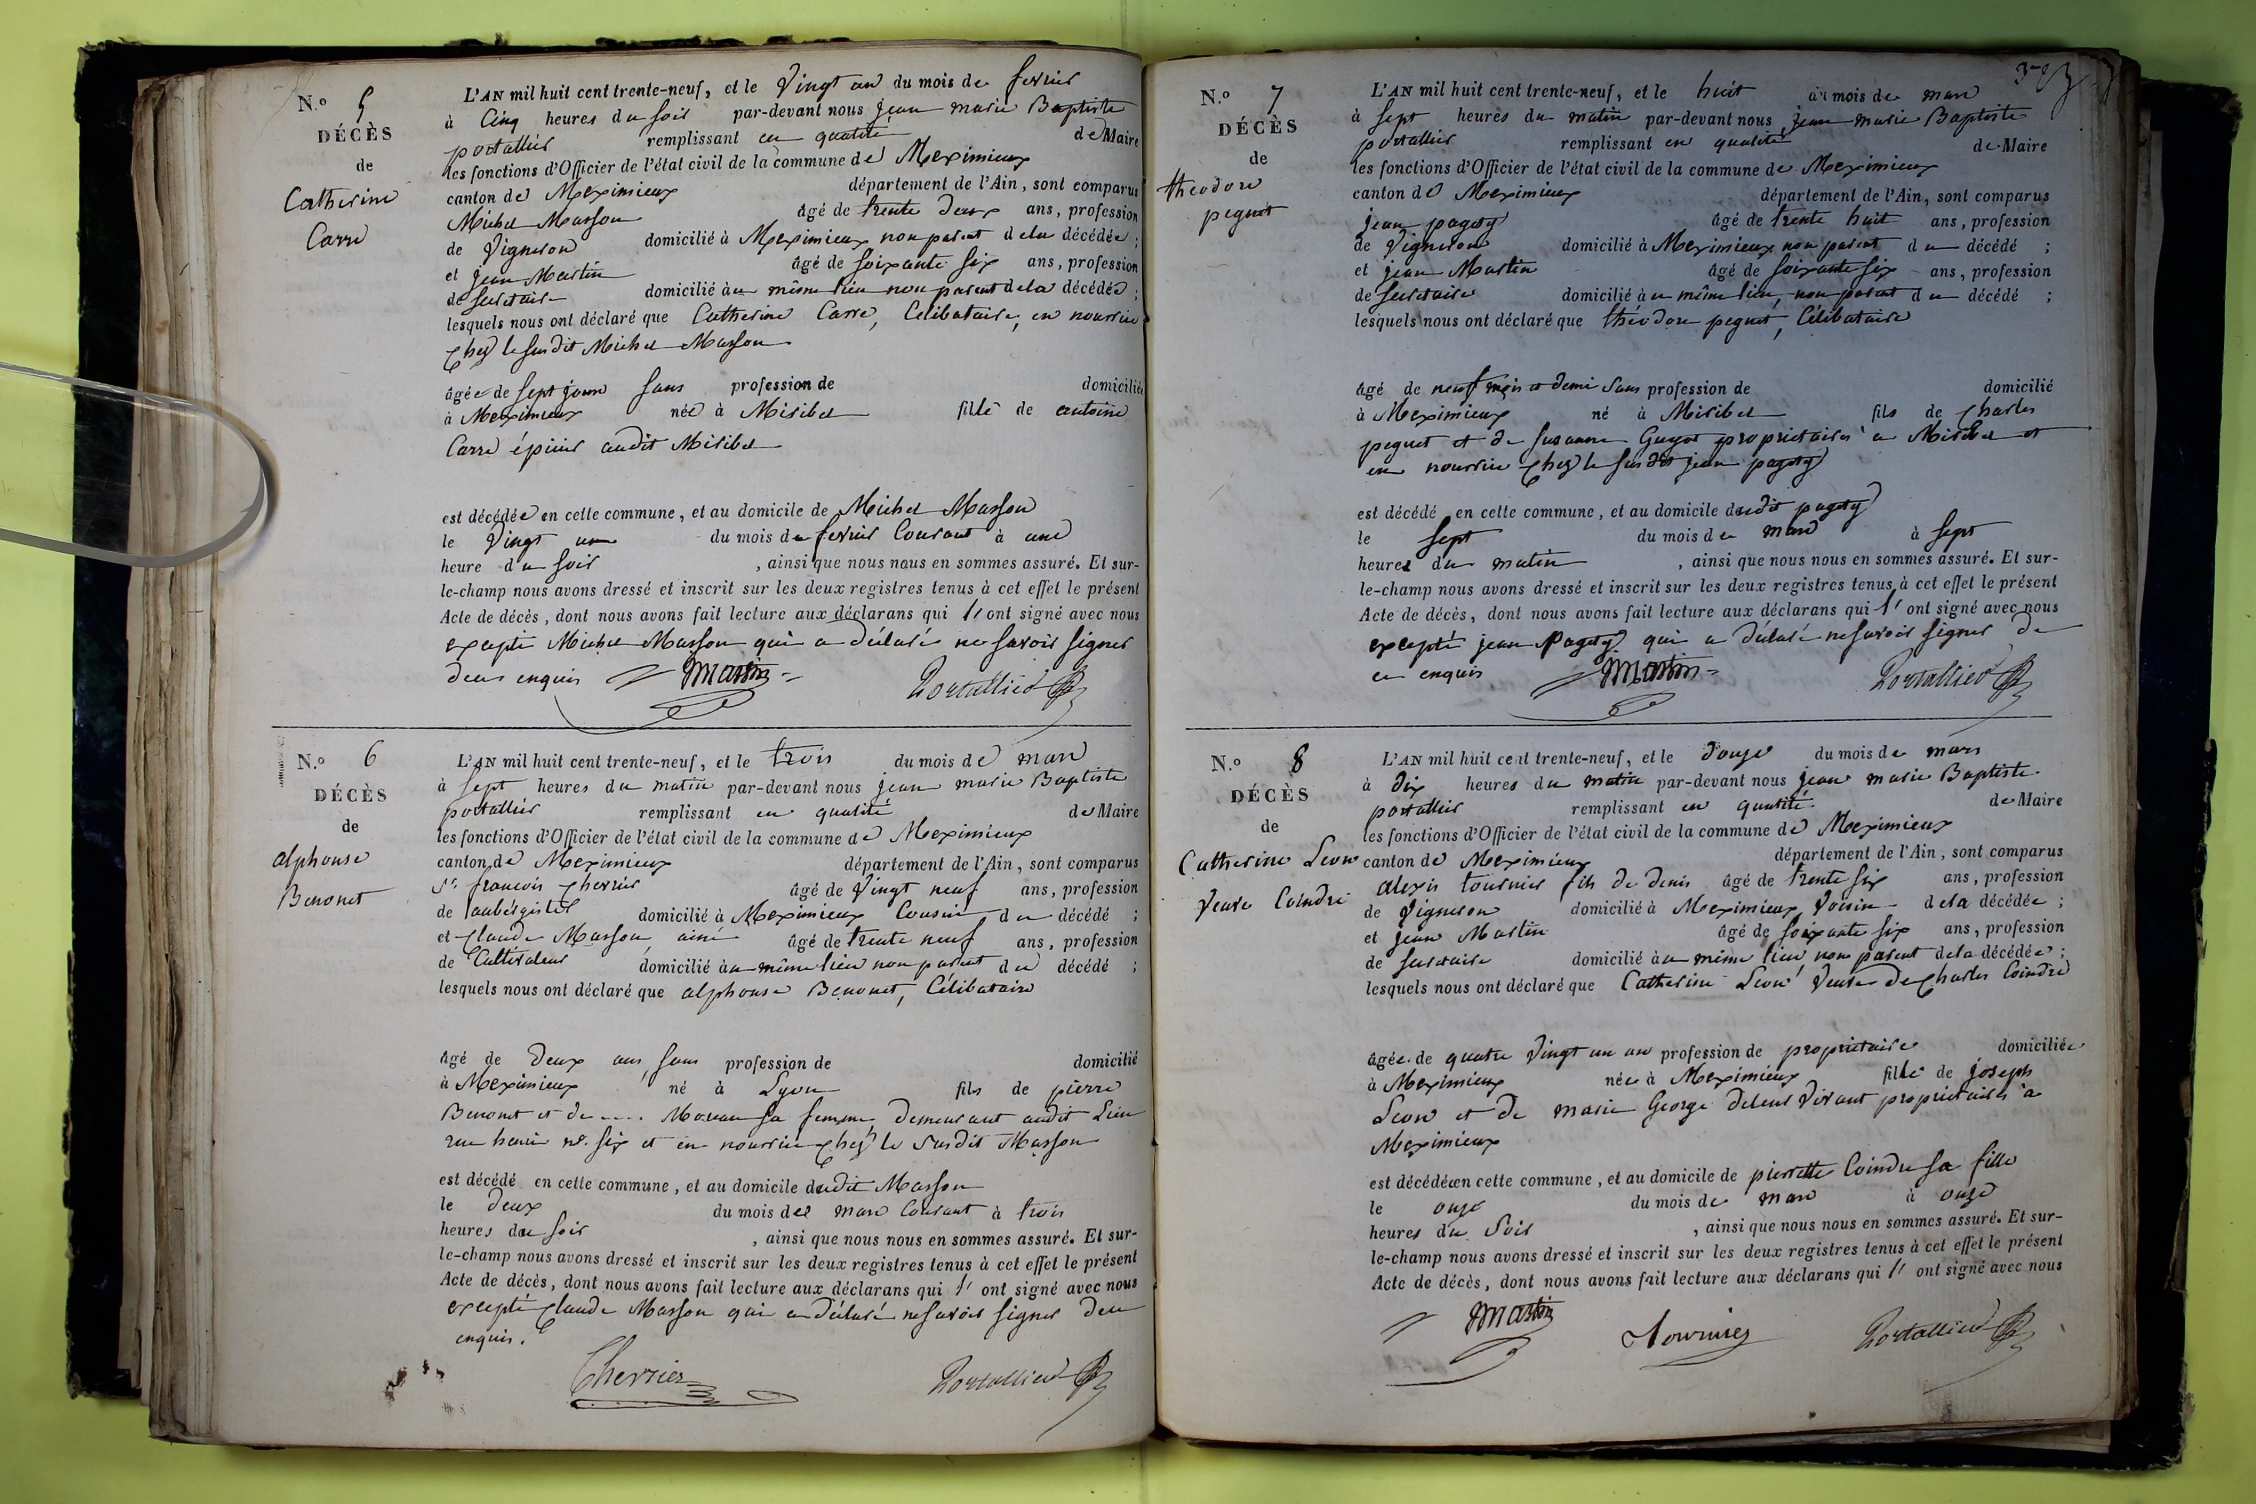 N.o 5
DÉCÈS
de
Catherine
Carre
L'AN mil huit cent trente-neuf, et le Vingt un du mois de fevrier
à Cinq heures du soir par-devant nous jean marie Baptiste
portallier remplissant en qualité de Maire
les fonctions d'Officier de l'état civil de la commune de Meximieux
canton de Meximieux département de l'Ain, sont comparus
Michel Masson âgé de trente deux ans, profession
de Vigneron domicilié à Meximieux non parent de la décédée ;
et jean Martin âgé de soixante six ans, profession
de secretaire domicilié au même lieu non parent de la décédée ;
lesquels nous ont déclaré que Catherine Carre, Celibataire, en nourrice
chez le susdit Michel Masson
âgée de sept jours sans profession de domiciliée
à Meximieux née à Miribel fille de antoine
Carre épicier audit Miribel
est décédée en cette commune, et au domicile de Michel Masson
le Vingt un du mois de fevrier Courant à une
heure du soir , ainsi que nous nous en sommes assuré. Et sur-
le-champ nous avons dressé et inscrit sur les deux registres tenus à cet effet le présent
Acte de décès, dont nous avons fait lecture aux déclarans qui l' ont signé avec nous
excepté Michel Masson qui a déclaré ne savoir signer
de ce enquis Martin Portallier
N.o 6
DÉCÈS
de
alphonse
Benonet
L'AN mil huit cent trente-neuf, et le trois du mois de mars
à sept heures du matin par-devant nous jean marie Baptiste
portallier remplissant en qualité de Maire
les fonctions d'Officier de l'état civil de la commune de Meximieux
canton de Meximieux département de l'Ain, sont comparus
Sr. francois cherrier âgé de Vingt neuf ans, profession
de aubergiste domicilié à Meximieux Cousin du décédé ;
et Claude Masson ainé âgé de trente neuf ans, profession
de Cultivateur domicilié au même lieu non parent du décédé ;
lesquels nous ont déclaré que alphonse Benonet, Célibataire
âgé de deux ans sans profession de domicilié
à Meximieux né à Lyon fils de pierre
Benonet et de ..... sa femme, demeurant audit Lieu
rue no. six et en nourrice chez le susdit Masson
est décédé en cette commune, et au domicile dudit Masson
le deux du mois de mars Courant à trois
heures du soir , ainsi que nous nous en sommes assuré. Et sur-
le-champ nous avons dressé et inscrit sur les deux registres tenus à cet effet le présent
Acte de décès, dont nous avons fait lecture aux déclarans qui l' ont signé avec nous
excepté Claude Masson qui a déclaré ne savoir signer de ce
enquis.
Cherrier Portallier
N.o 7
DÉCÈS
de
théodore
peguet
L'AN mil huit cent trente-neuf, et le huit du mois de mars
à sept heures du matin par-devant nous jean marie Baptiste
portallier remplissant en qualité de Maire
les fonctions d'Officier de l'état civil de la commune de Meximieux
canton de Meximieux département de l'Ain, sont comparus
jean pagoz âgé de trente huit ans, profession
de Vigneron domicilié à Meximieux non parent du décédé ;
et jean Martin âgé de soixante six ans, profession
de secretaire domicilié au même lieu, non parent du décédé ;
lesquels nous ont déclaré que théodore peguet, Célibataire
âgé de neuf mois et demi sans profession de domicilié
à Meximieux né à Miribel fils de charles
peguet et de susanne Guyot proprietaires à Miribel et
en nourrice chez le susdit jean pagoz
est décédé en cette commune, et au domicile dudit pagoz
le sept du mois de mars à sept
heures du matin , ainsi que nous nous en sommes assuré. Et sur-
le-champ nous avons dressé et inscrit sur les deux registres tenus à cet effet le présent
Acte de décès, dont nous avons fait lecture aux déclarans qui l' ont signé avec nous
excepté jean Pagoz qui a déclaré ne savoir signer de
ce enquis Martin Portallier
N.o 8
DÉCÈS
de
Catherine Leon
Veuve Coindre
L'AN mil huit cent trente-neuf, et le douze du mois de mars
à dix heures du matin par-devant nous jean marie Baptiste
portallier remplissant en qualité de Maire
les fonctions d'Officier de l'état civil de la commune de Meximieux
canton de Meximieux département de l'Ain, sont comparus
alexis tournier fils de denis âgé de trente six ans, profession
de Vigneron domicilié à Meximieux Voisin de la décédée ;
et jean Martin âgé de soixante six ans, profession
de secretaire domicilié au même lieu non parent de la décédée ;
lesquels nous ont déclaré que Catherine Leon Veuve de charles Coindre
âgée de quatre Vingt un an profession de proprietaire domiciliée
à Meximieux née à Meximieux fille de joseph
Leon et de marie George de leur Vivant proprietaires à
Meximieux
est décédée en cette commune, et au domicile de pierrette Coindre sa fille
le onze du mois de mars à onze
heures du soir , ainsi que nous nous en sommes assuré. Et sur-
le-champ nous avons dressé et inscrit sur les deux registres tenus à cet effet le présent
Acte de décès, dont nous avons fait lecture aux déclarans qui l' ont signé avec nous
Martin Tournier Portallier